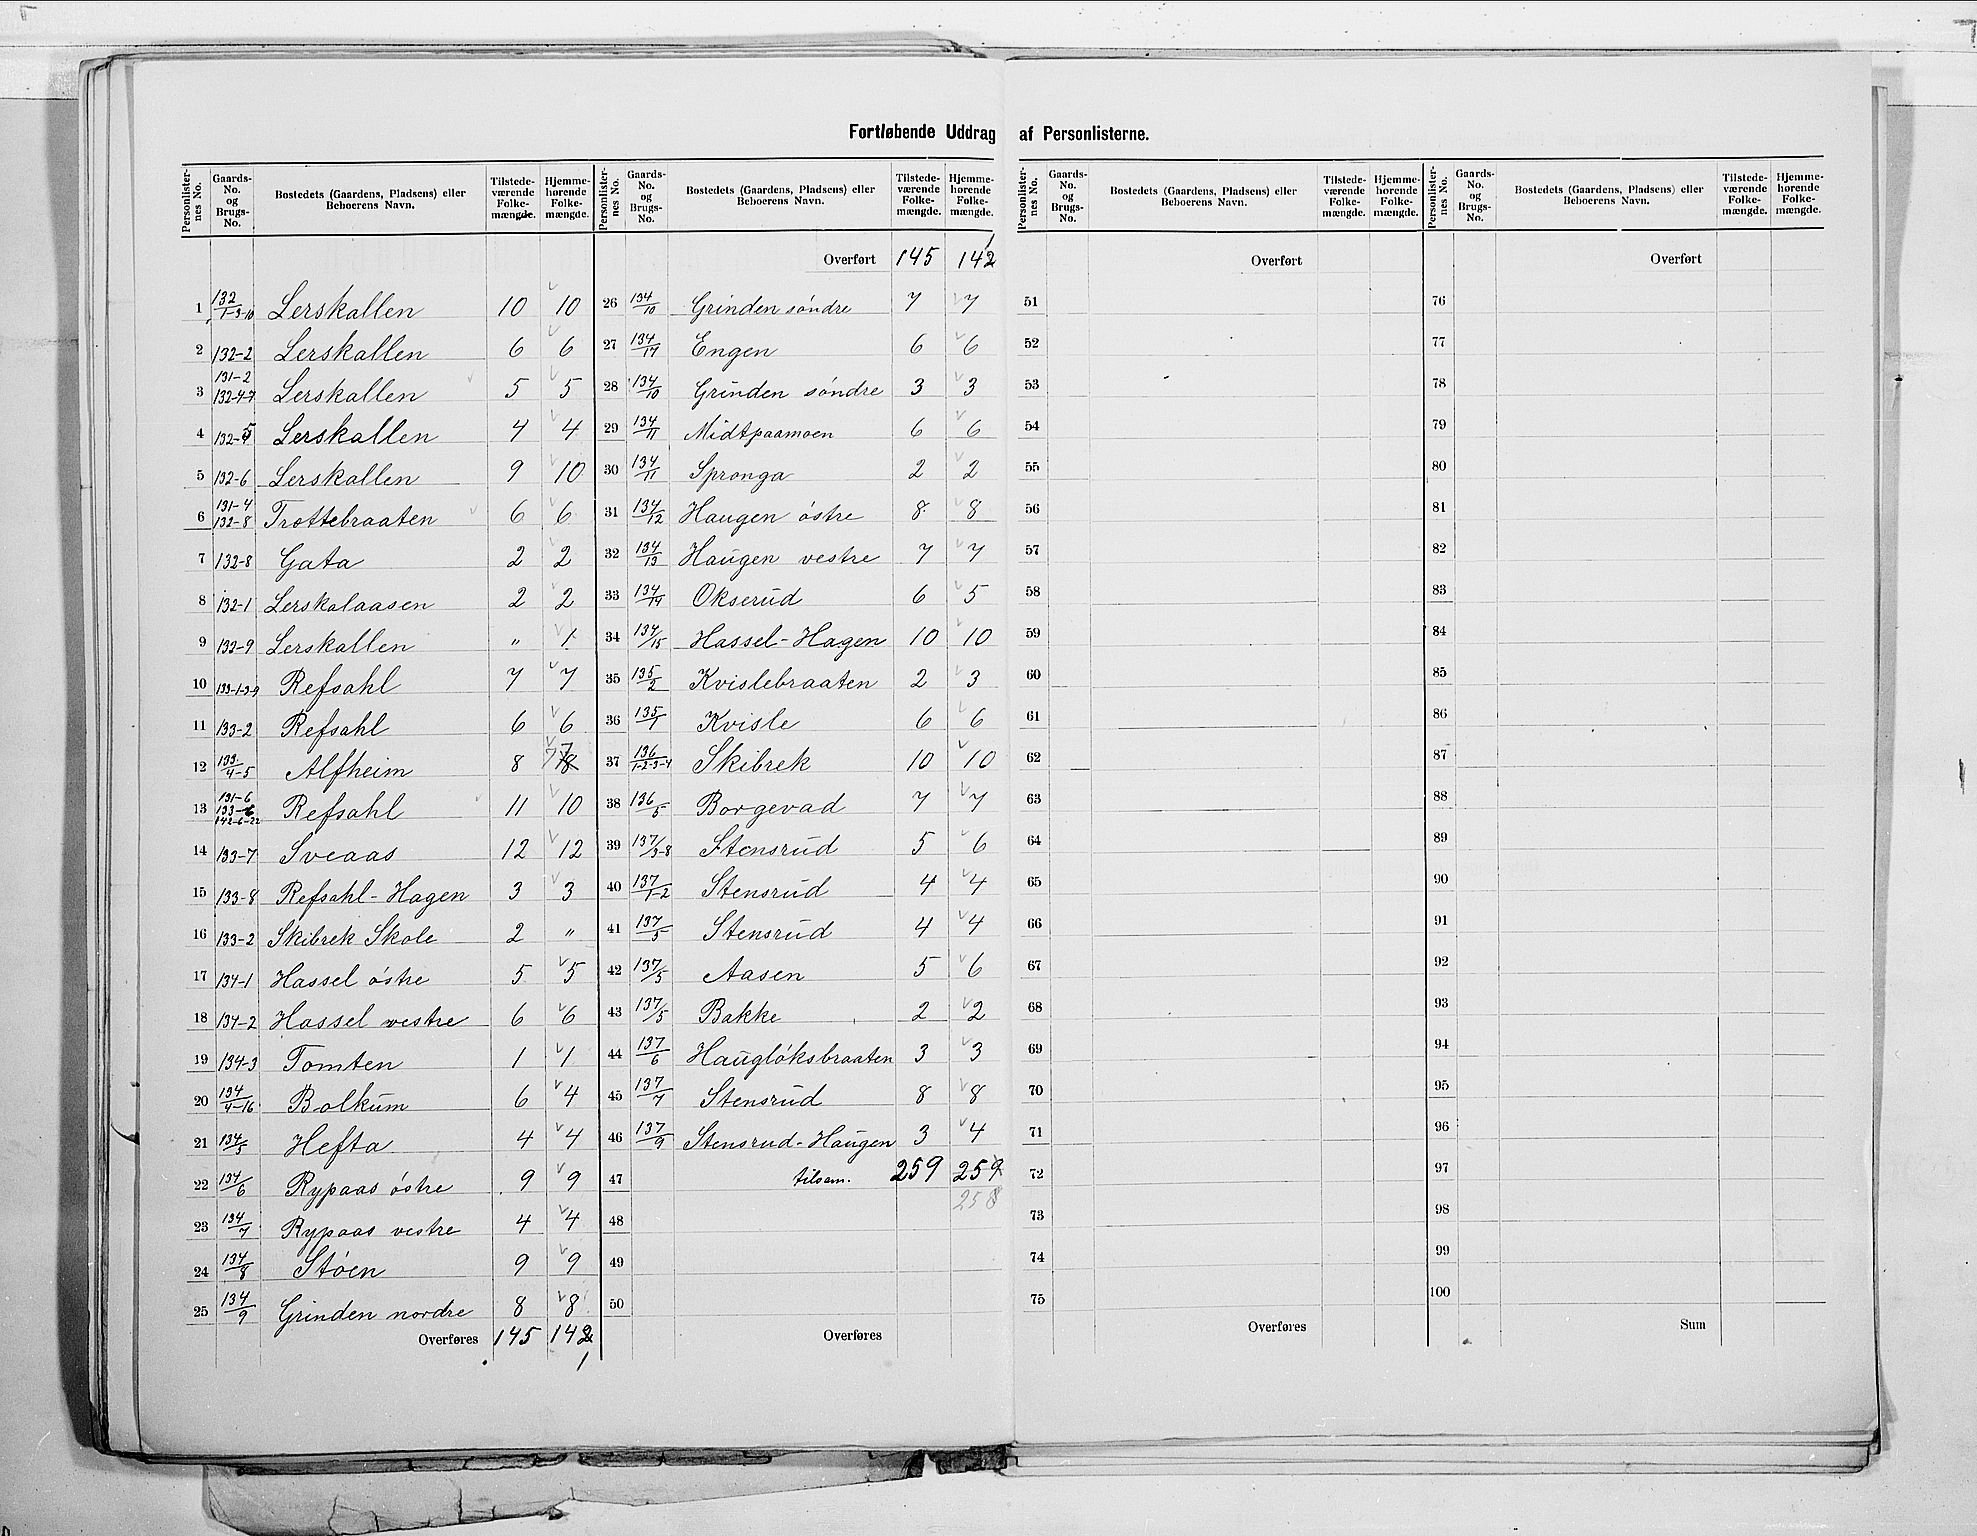 Fortløbende Uddrag af Personlisternes.
Personlisternes No. | Gaards-No. og Brugs-No. | Bostedets (Gaardens, Pladsens) eller Beboerens Navn. | Tilstedeværende Folkemængde. | Hjemmehørende Folkemængde.
1 132/1-3-10 Lerskallen 10 10
2 132-2 Lerskallen 6 6
3 131-2 132-4-7 Lerskallen 5 5
4 132-5 Lerskallen 4 4
5 132-6 Lerskallen 9 10
6 131-4 132-8 Trottebraaten 6 6
7 132-8 Gata 2 2
8 132-1 Lerskalaasen 2 2
9 132-9 Lerskallen " 1
10 133-1-3-9 Refsahl 7 7
11 133-2 Refsahl 6 6
12 133/4-5 Alfheim 8 8 7
13 131-6 133-6 142-6-22 Refsahl 11 10
14 133-7 Sveaas 12 12
15 133-8 Refsahl-Hagen 3 3
16 133-2 Skibrek Skole 2 "
17 134-1 Hassel østre 5 5
18 134-2 Hassel vestre 6 6
19 134-3 Tomten 1 1
20 134/4-16 Bolkum 6 4
21 134/5 Hefta 4 4
22 134/6 Rypaas østre 9 9
23 134/7 Rypaas vestre 4 4
24 134/8 Støen 9 9
25 134/9 Grinden nordre 8 8
Overføres 145 142 1
Personlisternes No. | Gaards-No. og Brugs-No. | Bostedets (Gaardens, Pladsens) eller Beboerens Navn. | Tilstedeværende Folkemængde. | Hjemmehørende Folkemængde.
Overført 145 142 1
26 134/10 Grinden søndre 7 7
27 134/17 Engen 6 6
28 134/10 Grinden søndre 3 3
29 134/11 Midtpaamoen 6 6
30 134/11 Spronga 2 2
31 134/12 Haugen østre 8 8
32 134/13 Haugen vestre 7 7
33 134/14 Okserud 6 5
34 134/15 Hassel-Hagen 10 10
35 135/2 Kvislebraaten 2 3
36 135/1 Kvisle 6 6
37 136/1-2-3-4 Skibrek 10 10
38 136/5 Borgevad 7 7
39 137/3-8 Stensrud 5 6
40 137/1-2 Stensrud 4 4
41 137/5 Stensrud 4 4
42 137/5 Aasen 5 6
43 137/5 Bakke 2 2
44 137/6 Haugløksbraaten 3 3
45 137/7 Stensrud 8 8
46 137/9 Stensrud-Haugen 3 4
47 tilsam. 259 259
258
48
49
50
Overføres
Personlisternes No. | Gaards-No. og Brugs-No. | Bostedets (Gaardens, Pladsens) eller Beboerens Navn. | Tilstedeværende Folkemængde. | Hjemmehørende Folkemængde.
Overført
51
52
53
54
55
56
57
58
59
60
61
62
63
64
65
66
67
68
69
70
71
72
73
74
75
Overføres
Personlisternes No. | Gaards-No. og Brugs-No. | Bostedets (Gaardens, Pladsens) eller Beboerens Navn. | Tilstedeværende Folkemængde. | Hjemmehørende Folkemængde.
Overført
76
77
78
79
80
81
82
83
84
85
86
87
88
89
90
91
92
93
94
95
96
97
98
99
100
Sum